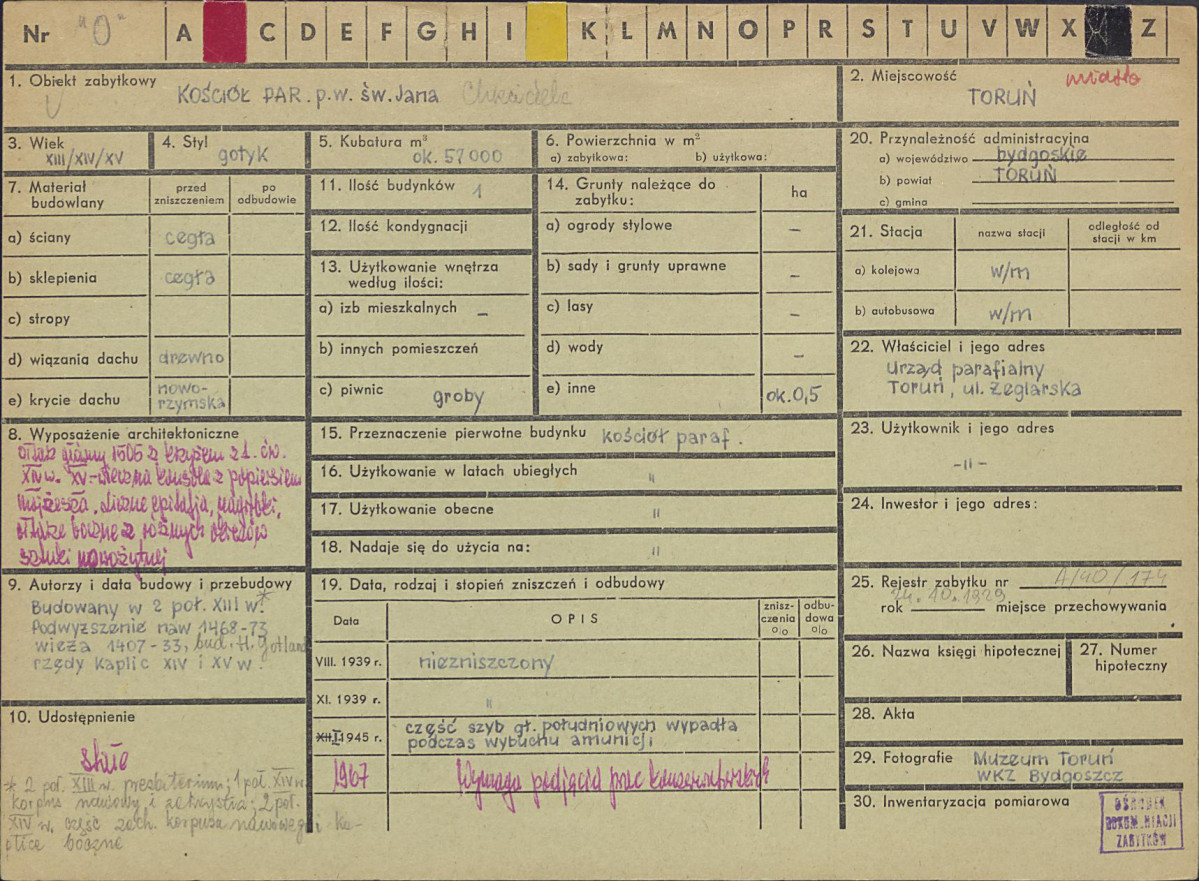 Nr "0" A C D E F G H I K L M N O P R S T U V W X Z
1. Obiekt zabytkowy
KOŚCIÓŁ PAR. p.w. św. Jana Chrzciciela
2. Miejscowość
miasto
TORUŃ
3. Wiek
XIII/XIV/XV
4. Styl
gotyk
5. Kubatura m³
ok. 57000
6. Powierzchnia w m²
a) zabytkowa: b) użytkowa:
20. Przynależność administracyjna
a) województwo bydgoskie
b) powiat TORUŃ
c) gmina
7. Materiał
budowlany
przed
zniszczeniem
po
odbudowie
a) ściany cegła
b) sklepienia cegła
c) stropy
d) wiązania dachu drewno
e) krycie dachu nowo-
rzymska
11. Ilość budynków 1
12. Ilość kondygnacji
13. Użytkowanie wnętrza
według ilości:
a) izb mieszkalnych –
b) innych pomieszczeń
c) piwnic groby
14. Grunty należące do
zabytku:
ha
a) ogrody stylowe –
b) sady i grunty uprawne –
c) lasy –
d) wody –
e) inne ok. 0,5
21. Stacja
nazwa stacji
odległość od
stacji w km
a) kolejowa w/m
b) autobusowa w/m
22. Właściciel i jego adres
Urząd parafialny
Toruń, ul. Żeglarska
8. Wyposażenie architektoniczne
ołtarz główny 1505 z krzyżem z 1. ćw.
XIV w. XV-wieczna konsola z popiersiem
Mojżesza, liczne epitafia, nagrobki,
ołtarze boczne z różnych okresów
sztuki nowożytnej
15. Przeznaczenie pierwotne budynku kościół paraf.
16. Użytkowanie w latach ubiegłych "
17. Użytkowanie obecne "
18. Nadaje się do użycia na: "
23. Użytkownik i jego adres
-"-
24. Inwestor i jego adres:
9. Autorzy i data budowy i przebudowy
Budowany w 2 poł. XIII w.*
Podwyższenie naw 1468-73
wieża 1407-33, bud. H. Gotland
rzędy kaplic XIV i XV w.
19. Data, rodzaj i stopień zniszczeń i odbudowy
Data
OPIS
znisz-
czenia
o|o
odbu-
dowa
o|o
VIII. 1939 r. niezniszczony
XI. 1939 r. "
XII.I.1945 r. część szyb gł. południowych wypadła
podczas wybuchu amunicji
1967 Wymaga podjęcia prac konserwatorskich
25. Rejestr zabytku nr A/40/174
rok 24.10.1929 miejsce przechowywania
26. Nazwa księgi hipotecznej
27. Numer
hipoteczny
28. Akta
29. Fotografie Muzeum Toruń
WKZ Bydgoszcz
30. Inwentaryzacja pomiarowa
OŚRODEK
DOKUMENTACJI
ZABYTKÓW
10. Udostępnienie
stałe
* 2 poł. XIII w. presbiterium; 1 poł. XIV w.
korpus nawowy i zakrystia; 2 poł.
XIV w. część zach. korpusu nawowego i ka-
plice boczne